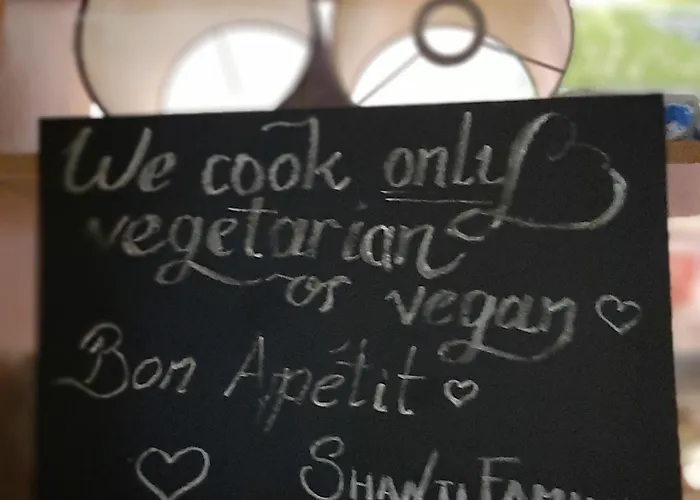 We cook only
vegetarian
or vegan
Bon Apétit
SHANTI